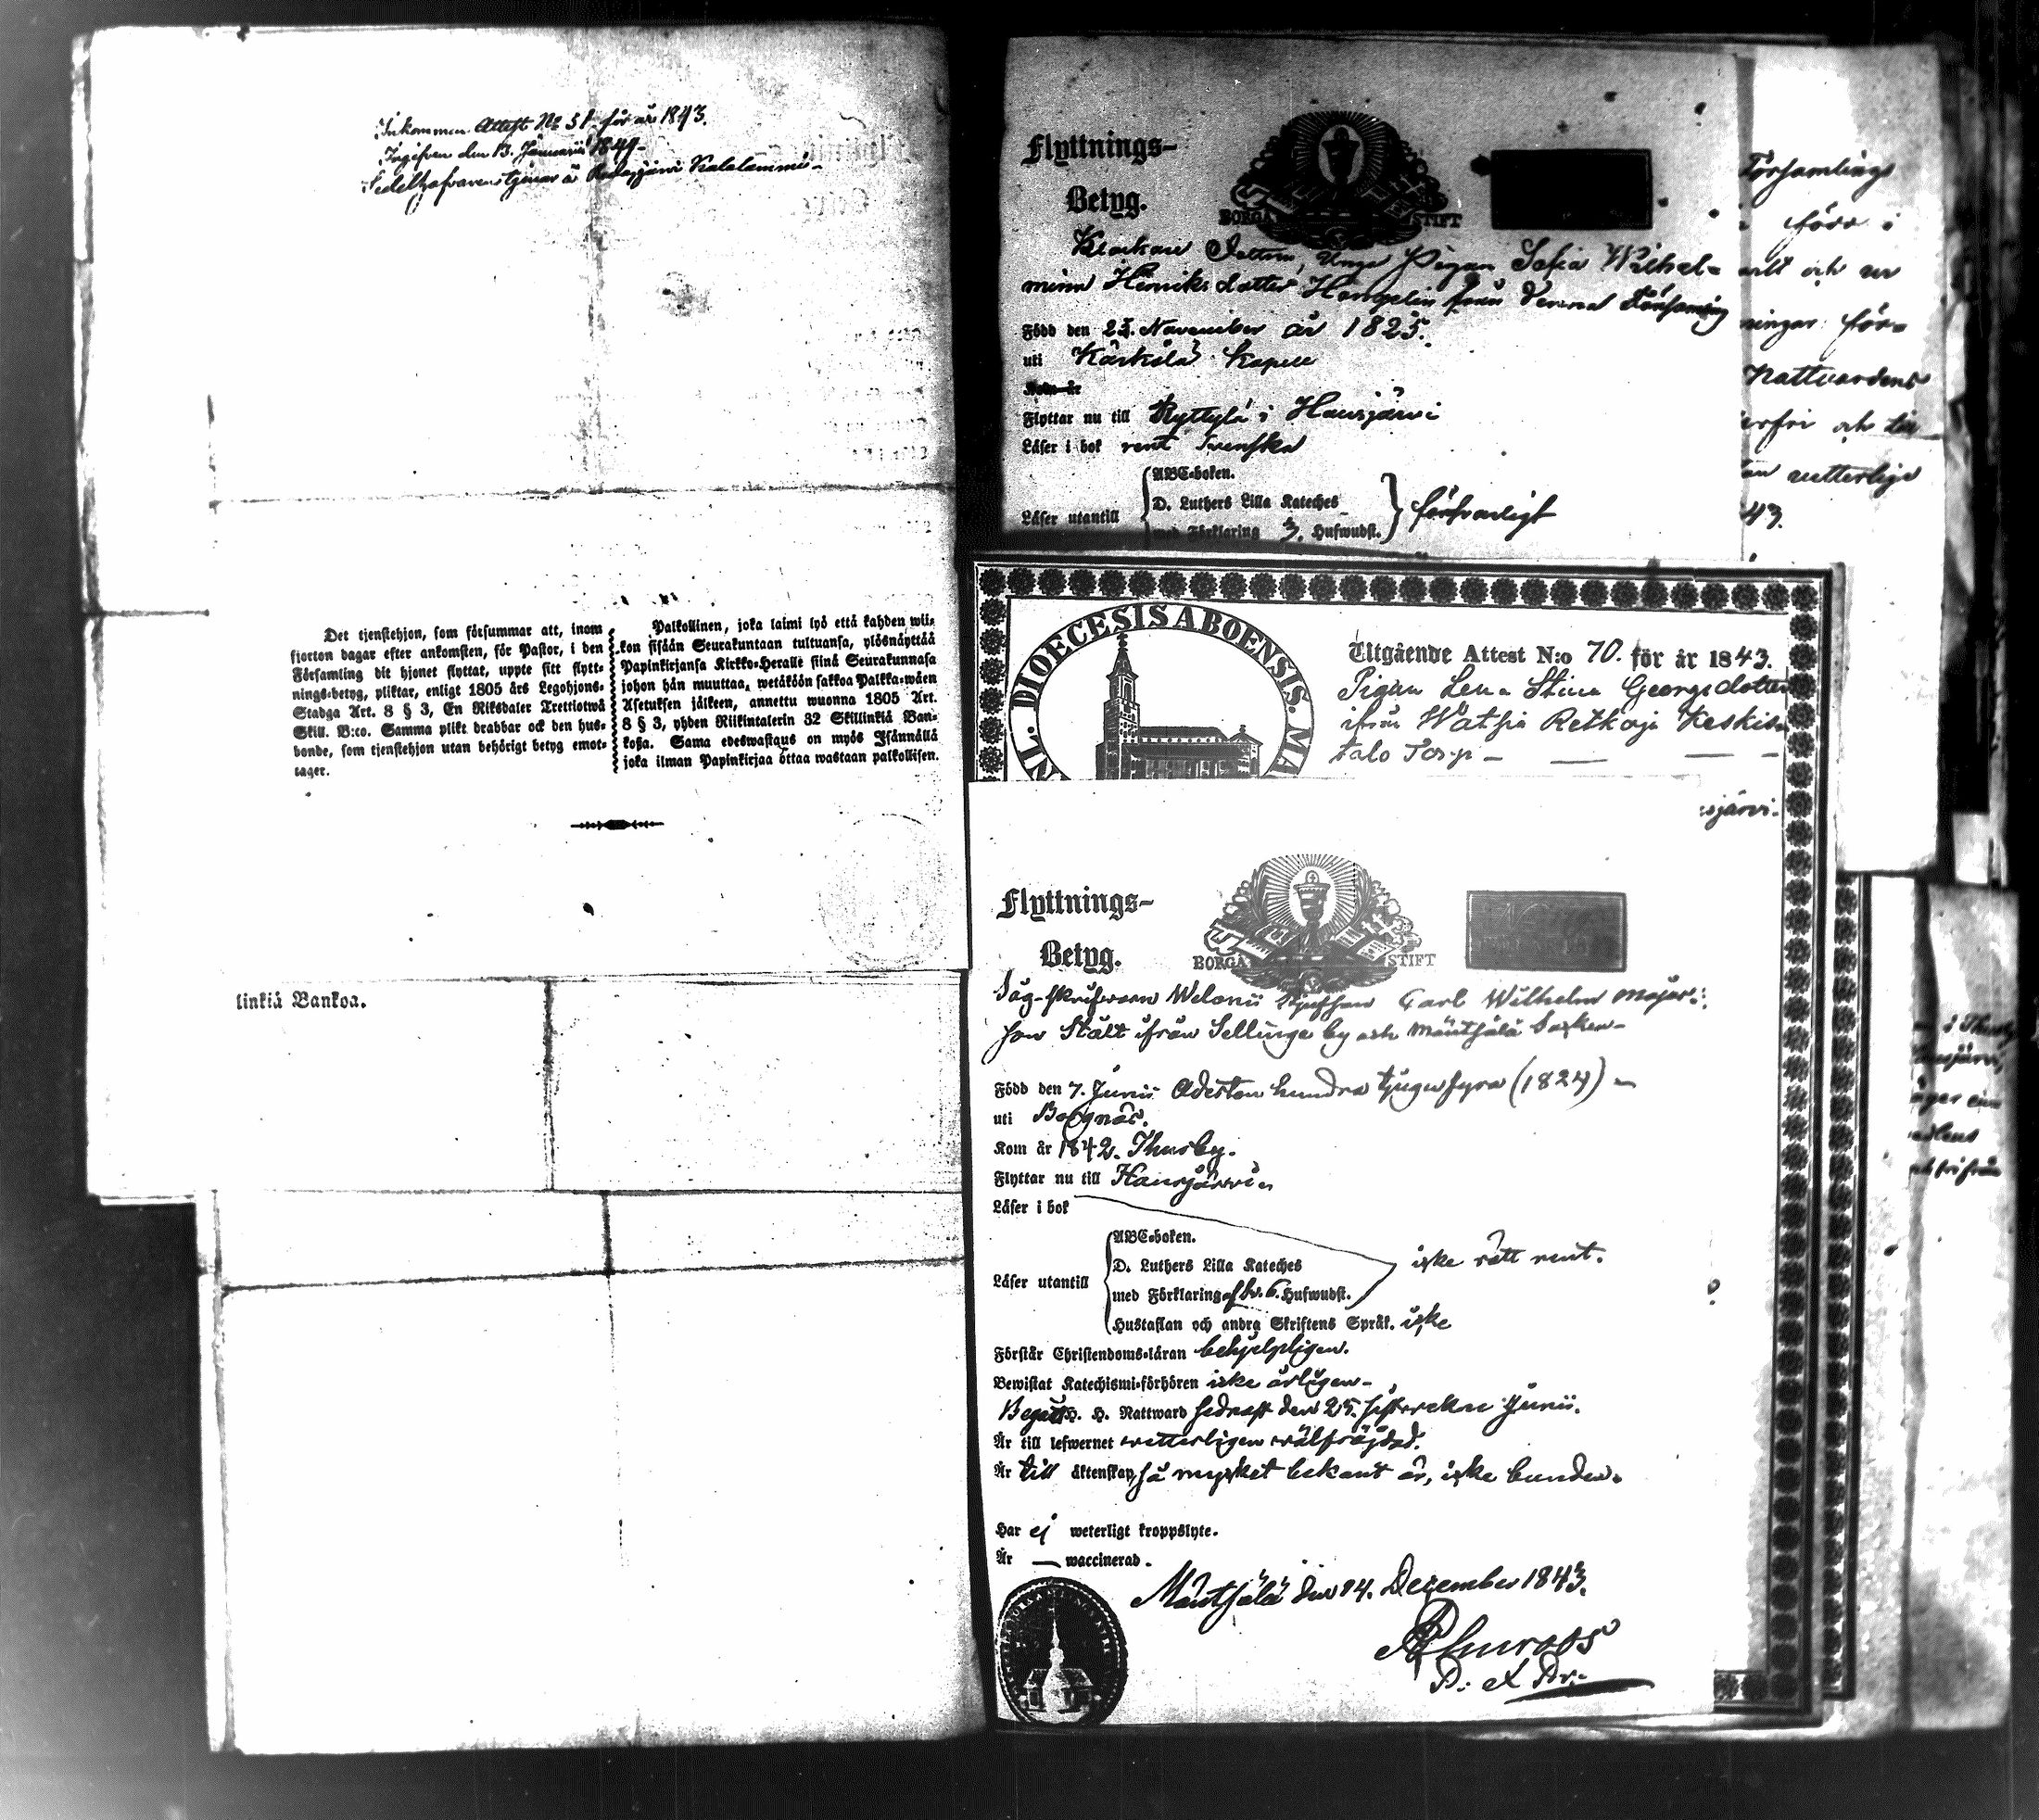 Inkommen Attest No 51 för år 1843.
Ingifven den 13. Januarii 1844-
Sedelhafvaren tjenar å Kalalammi-
Det tjenstehjon, som försummar att, inom
fjorton dagar efter ankomsten, för Pastor, i den
Församling dit hjonet flyttat, uppte sitt flytt-
nings-betyg, pliktar, enligt 1805 års Legohjons-
Stadga Art. 8 § 3, En Riksdaler Trettiotwå
Skill. B:co. Samma plikt drabbar ock den hus-
bonde, som tjenstehjon utan behörigt betyg emot-
tager.
Palkollinen, joka laimi lyö että kahden wii-
kon sisään Seurakuntaan tultuansa, ylösnäyttää
Papinkirjansa Kirkko-Heralle siinä Seurakunnasa
johon hän muuttaa, wetäköön sakkoa Palkka-wäen
Asetuksen jälkeen, annettu wuonna 1805 Art.
8 § 3, yhden Riikintalerin 32 Skillinkiä Ban-
kosa. Sama edeswastaus on myös Isännällä
joka ilman Papinkirjaa ottaa wastaan palkollisen.
linkiä Bankoa.
Flyttnings-
Betyg.
BORGÅ STIFT
Klockare Dottren, Unga Pigan Sofia Wilhel-
mina Henriksdotter från denna Församling
Född den 23. November år 1825.
uti Kärkölä Kapell
Kom år
Flyttar nu till Ryttylä i Hausjärvi
Läser i bok rent Svenska
Läser utantill
ABC-boken.
D. Luthers Lilla Kateches
med Förklaring 3. Hufwudst.
försvarligt
Församlings
förr i
och
ningar för-
Nattvardens
erfri och
en vetterlige
43.
DIOECESIS ABOENSIS.
Utgående Attest N:o 70. för år 1843.
Pigan Lena Stina Georgsdotter
ifrån Watsia Retkoja Keskis-
talo Torp-
sjärvi.
Flyttnings-
Betyg.
BORGÅ STIFT
Carl Wilhelm
son Stålt ifrån Sellinge by och Mäntsälä Socken-
Född den 7. Junii Aderton hundra tjugu fyra (1824)-
uti Borgnäs.
Kom år 1842. Thusby.
Flyttar nu till Hausjärvi
Läser i bok
Läser utantill
ABC-boken.
D. Luthers Lilla Kateches
med Förklaring 6. Hufwudst.
Hustaflan och andra Skriftens Språk. icke
icke rätt rent.
Förstår Christendoms-läran behjelpligen.
Bewistat Katechismi-förhören icke årligen-
Begått H. H. Nattward sednast den 25. sistvekne Junii.
Är till lefwernet vetterligen välfrägdad.
Är till äktenskap, så mycket bekant är, icke bunden.
Har ej weterligt kroppslyte.
Är — waccinerad.
Mäntsälä den 14. December 1843.